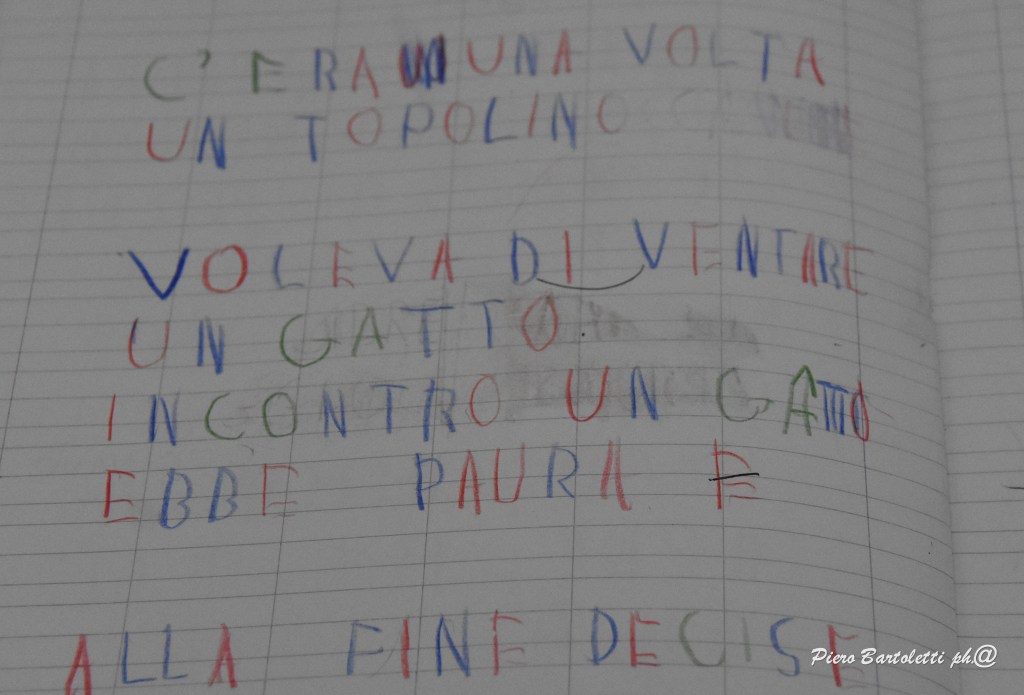 C'ERA UNA VOLTA
UN TOPOLINO
VOLEVA DI VENTARE
UN GATTO.
INCONTRO UN GATTO
EBBE PAURA E
ALLA FINE DECISE
Piero Bartoletti ph.@